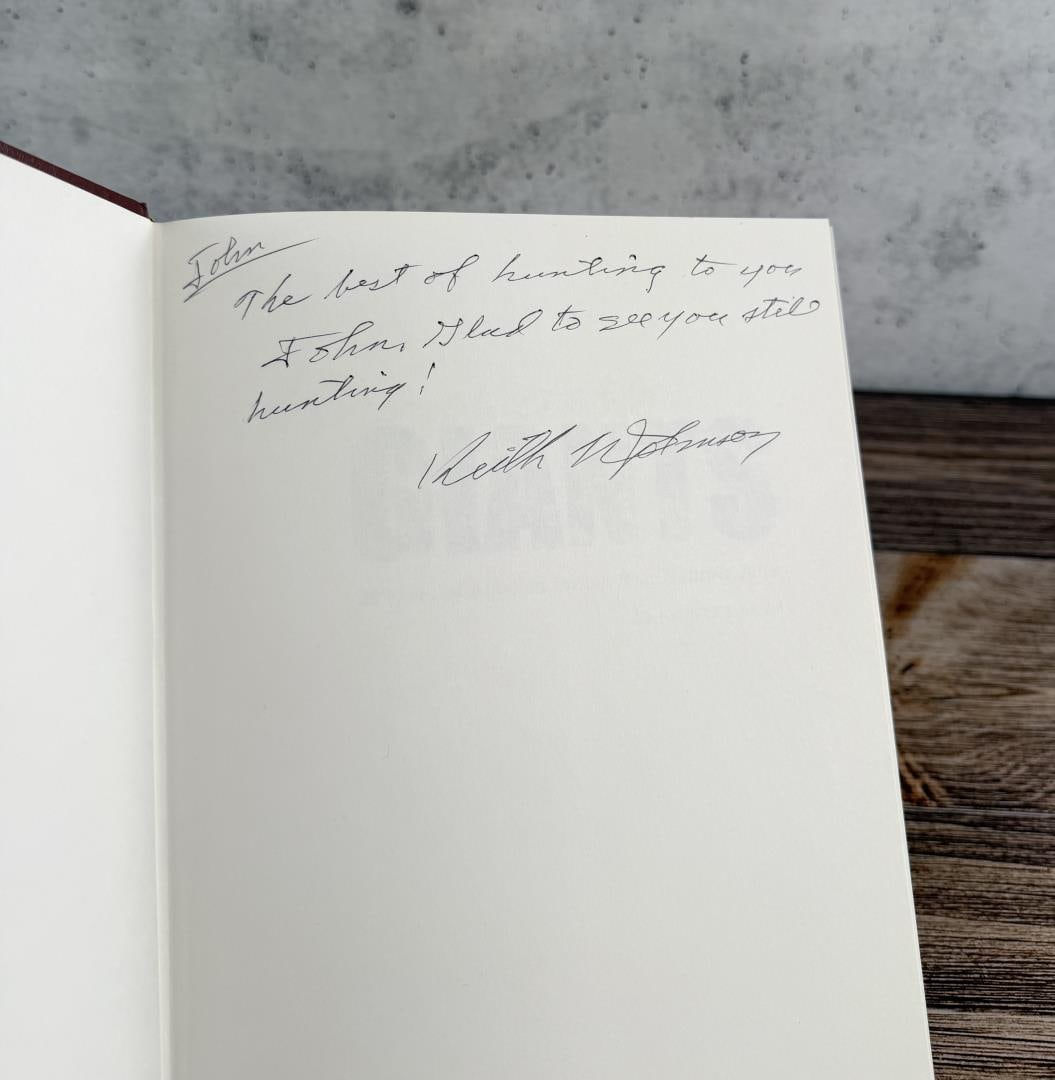 John
The best of hunting to you
John. Glad to see you still
hunting!
Keith N Johnson